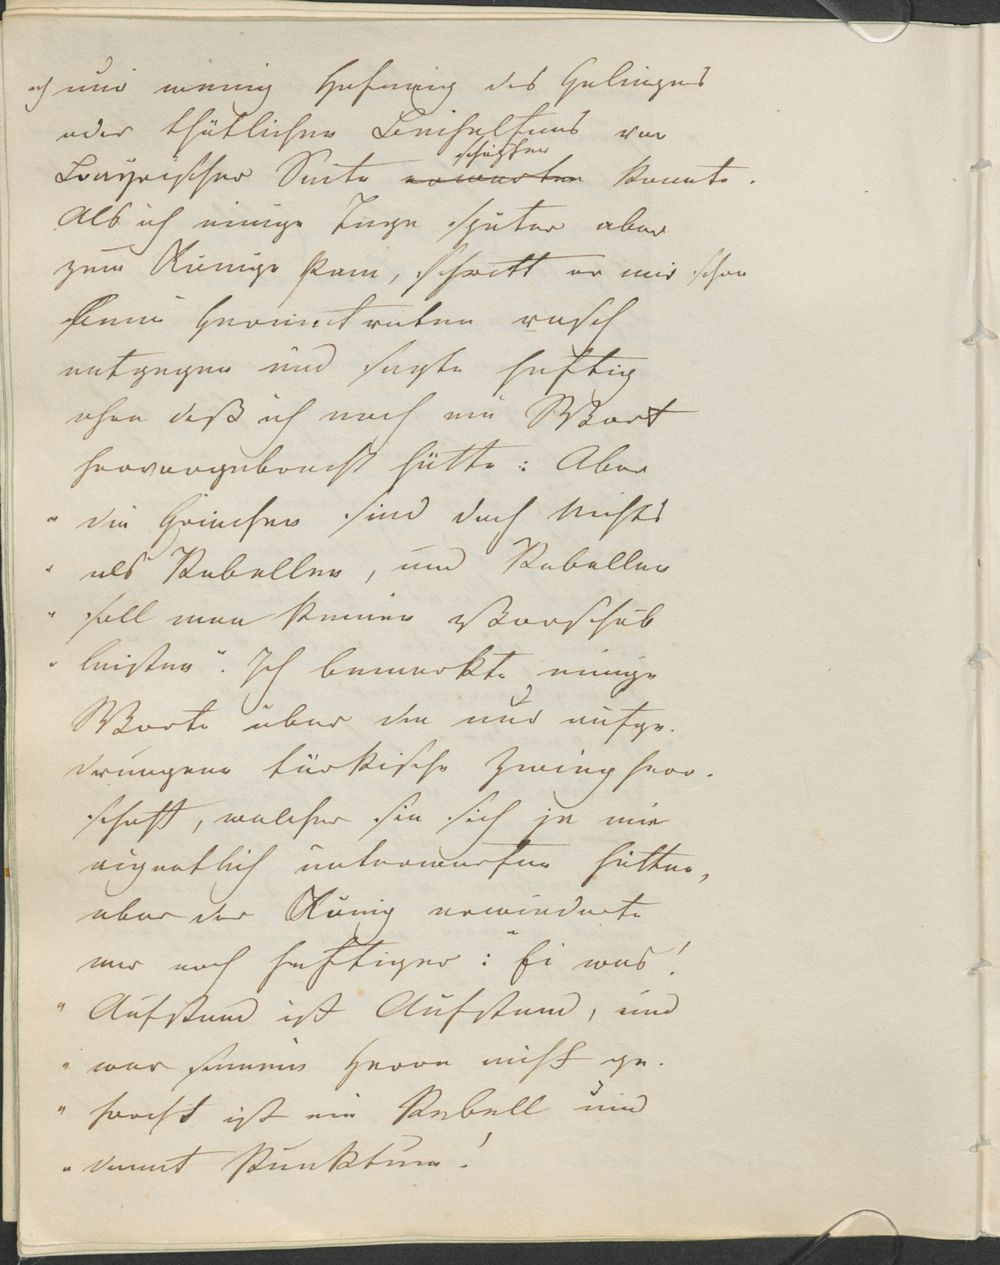 ich nur wenig Hofnung des Gelingens
oder thätlichen Beihelfens von
schöpfen
Bayrischer Seite erwarten konnte.
Als ich einige Tage später aber
zum Könige kam, schritt er mir schon
beim Hereintreten rasch
entgegen und sagte heftig
ohne daß ich noch ein Wort
hervorgebracht hätte: Aber
" die Griechen sind doch Nichts
" als Rebellen, und Rebellen
" soll man keinen Vorschub
" leisten". Ich bemerkte einige
Worte über die nur aufge-
drungene türkische Zwingherr-
schaft, welcher sie sich ja nie
eigentlich unterworfen hätten,
aber der König erwiederte
nur noch heftiger: "Ei was!
" Aufstand ist Aufstand, und
" wer seinem Herrn nicht ge-
" horcht ist ein Rebell und
" damit Punktum!